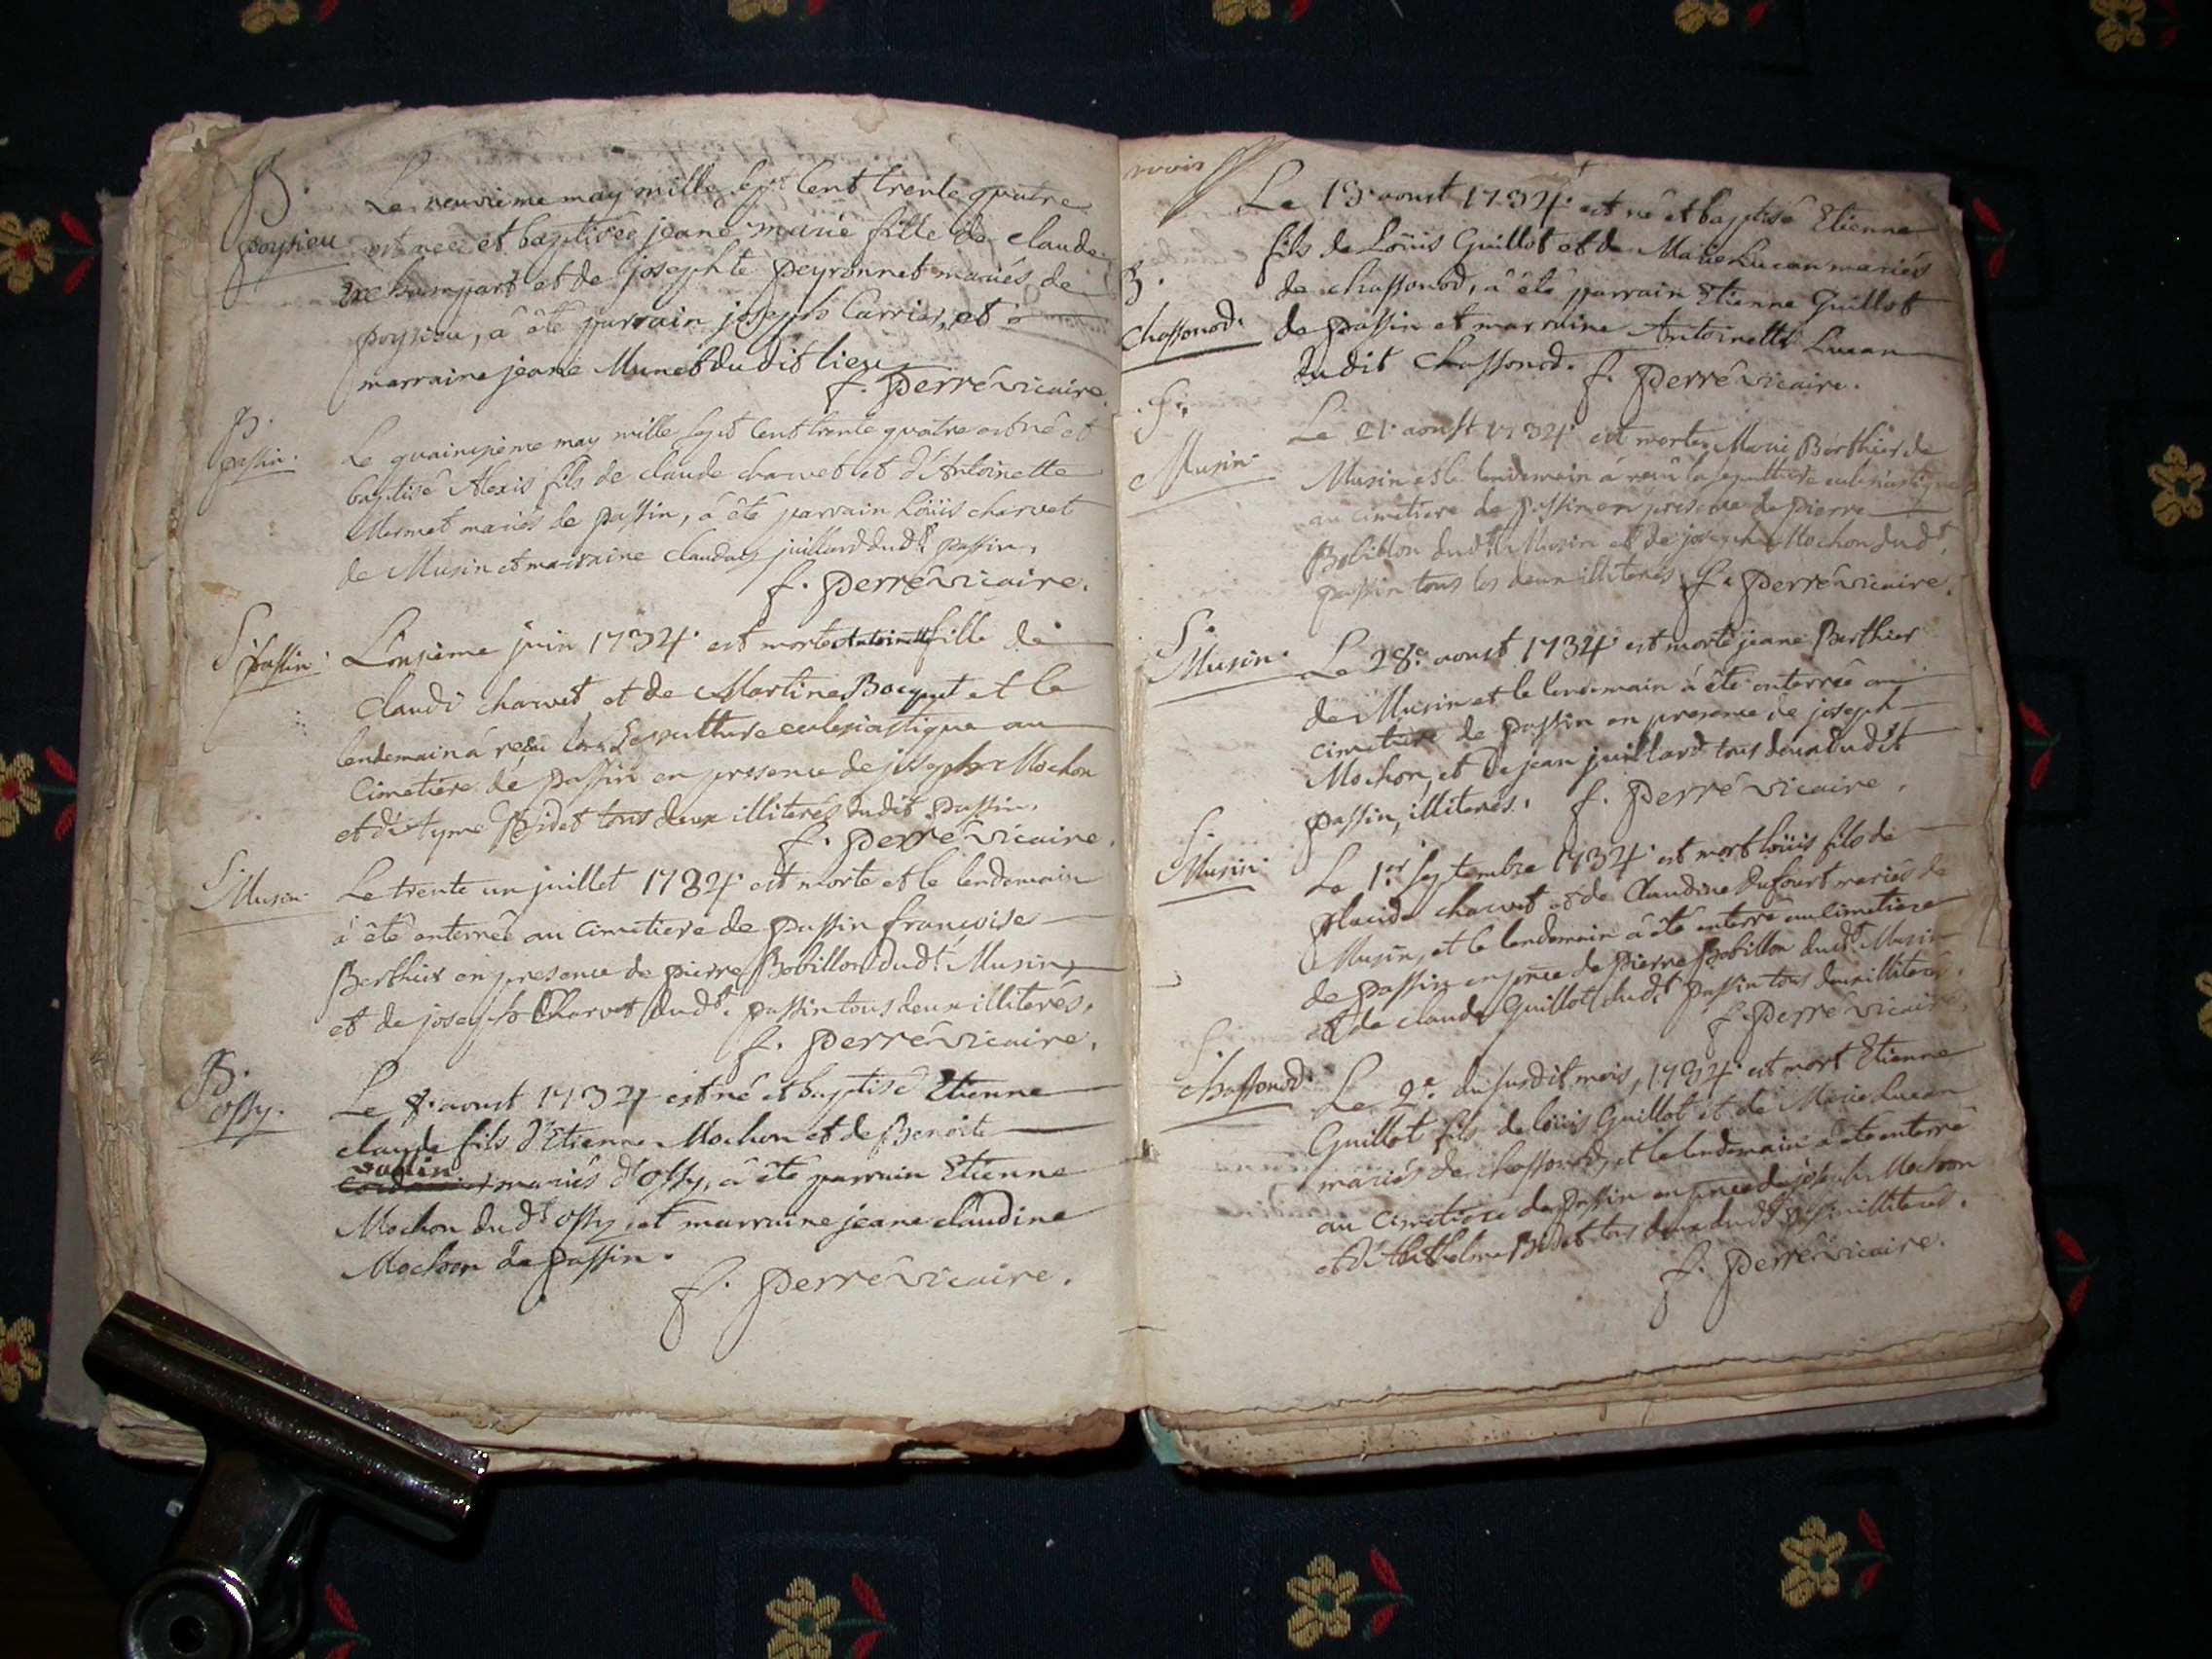 B.
poysieu
Le neuvieme may mille sept Cent trente quatre
est neé et baptiseé jeane marie fille de claude
trehampart et de josephte peyronnet mariés de
poysieu, à êté parrain joseph Carrier, et
marraine jeane Munet dudit lieu
f. Perré vicaire.
B.
passin.
Le quainzieme may mille sept Cent trente quatre est né et
baptisé Alexis fils de claude charvet et d'Antoinette
Mermet mariés de passin, à êté parrain Loüis charvet
de Musin et marraine Claudaz juillard dudt passin,
f. Perré vicaire.
S.
passin.
L'onzieme juin 1734. est morte Antoinette fille de
Claude charvet et de Martine Bocquet et le
lendemain à reçu la Sepulture eclesiastique au
Cimetiere de passin en presence de joseph Mochon
et d'Etyme Bidet tous deux illiterés dudit passin.
f. Perré vicaire.
S.
Musin.
Le trente un juillet 1734. est morte et le lendemain
à êté enterreé au Cimetiere de passin françoise
Berthier en presence de pierre Bobillon dudt Musin,
et de joseph Charvet dudt. passin tous deux illiterés.
f. Perré vicaire.
B.
ossy.
Le 8. aoust 1734 est né et baptisé Etienne
claude fils d'Etienne Mochon et de Benoite
vallin
mariés d'Ossy, à êté parrain Etienne
Mochon dudt ossy et marraine jeane claudine
Mochon de passin.
f. Perré vicaire.
B.
Chassonod.
Le 13. aoust 1734. est né et baptisé Etienne
fils de Loüis Guillot et de Marie Lucan mariés
de chassonod, à êté parrain Etienne Guillot
de passin et marraine Antoinette Lucan
dudit Chassonod. f. Perré vicaire.
S.
Musin.
Le 21. aoust 1734. est morte Marie Berthier de
Musin et le lendemain à reçû la sepulture eclesiastique
au cimetiere de passin en presence de pierre
Bobillon dudt. Musin et de joseph Mochon dudt.
passin tous les deux illiterés. f. Perré vicaire.
S.
Musin.
Le 28e. aoust 1734 est morte jeane Berthier
de Musin et le lendemain à êté enterreé au
cimetiere de passin en presence de joseph
Mochon, et de jean juillard tous deux dudit
passin, illiterés. f. Perré vicaire.
S.
Musin.
Le 1er. septembre 1734. est mort loüis fils de
placide charvet et de Claudine Dufourt mariés de
Musin, et le lendemain à êté enterré au Cimetiere
de passin en pnce de Pierre Bobillon dudt Musin
et de claude Guillot dudt passin tous deux illiterés.
f. Perré vicaire.
S.
Chassonod.
Le 2e. du susdit mois, 1734. est mort Etienne
Guillot fils de loüis Guillot et de Marie Lucan
mariés de chassonod, et le lendemain à êté enterré
au Cimetiere de passin en pnce de joseph Mochon
et d'Anthelme Bidet tous deux dudt passin illiterés.
f. Perré vicaire.